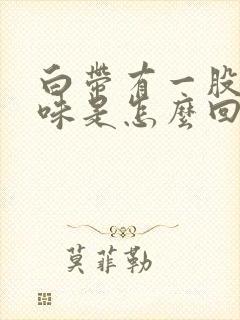 白带有一股
味是怎麼回
莫菲勒